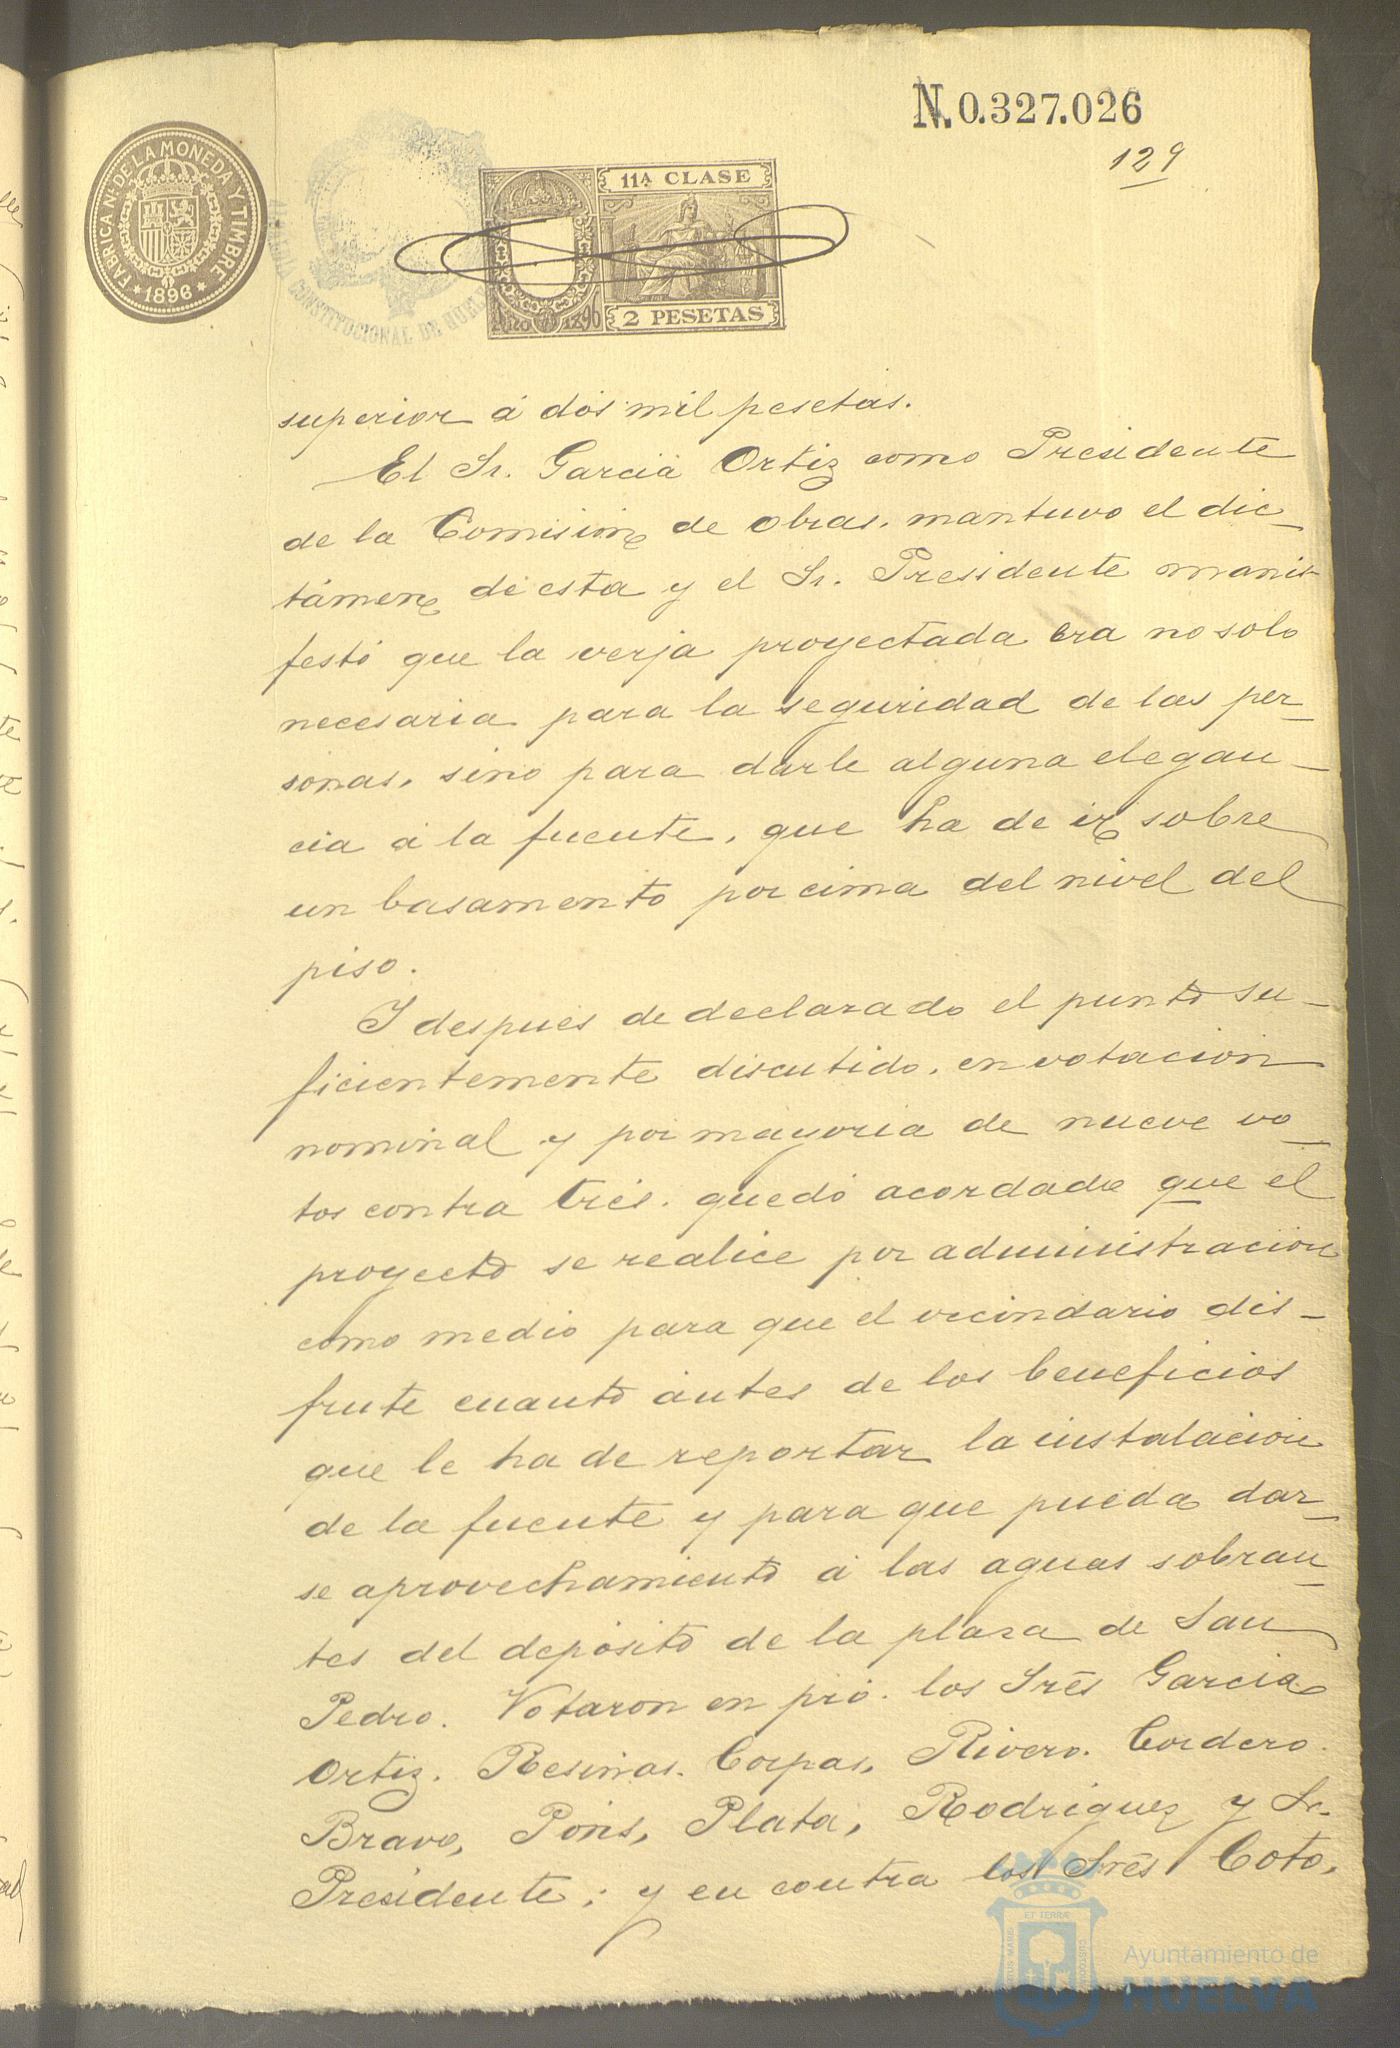 N. 0.327.026
129
FÁBRICA Nl. DE LA MONEDA Y TIMBRE
* 1896 *
CONSTITUCIONAL DE HUEL
11ª CLASE
AÑO 1896
2 PESETAS
superior á dos mil pesetas.
El Sr. Garcia Ortiz como Presidente
de la Comision de obras. mantuvo el dic_
támen de esta y el Sr. Presidente manis-
festó que la verja proyectada era no solo
necesaria para la seguridad de las per_
sonas, sino para darle alguna elegan_
cia á la fuente, que ha de ir sobre
un basamento por cima del nivel del
piso.
Y despues de declarado el punto su_
ficientemente discutido, en votacion
nominal y por mayoria de nueve vo_
tos contra tres. quedó acordado que el
proyecto se realice por administracion
como medio para que el vecindario dis_
frute cuanto ántes de los beneficios
que le ha de reportar la instalacion
de la fuente y para que pueda dar_
se aprovechamiento á las aguas sobran_
tes del depósito de la plaza de San
Pedro. Votaron en pró. los Sres Garcia
Ortiz. Resinas. Corpas, Rivero. Cordero.
Bravo, Pons, Plata, Rodriguez y Sr.
Presidente; y en contra los Sres Coto,
Ayuntamiento de
HUELVA